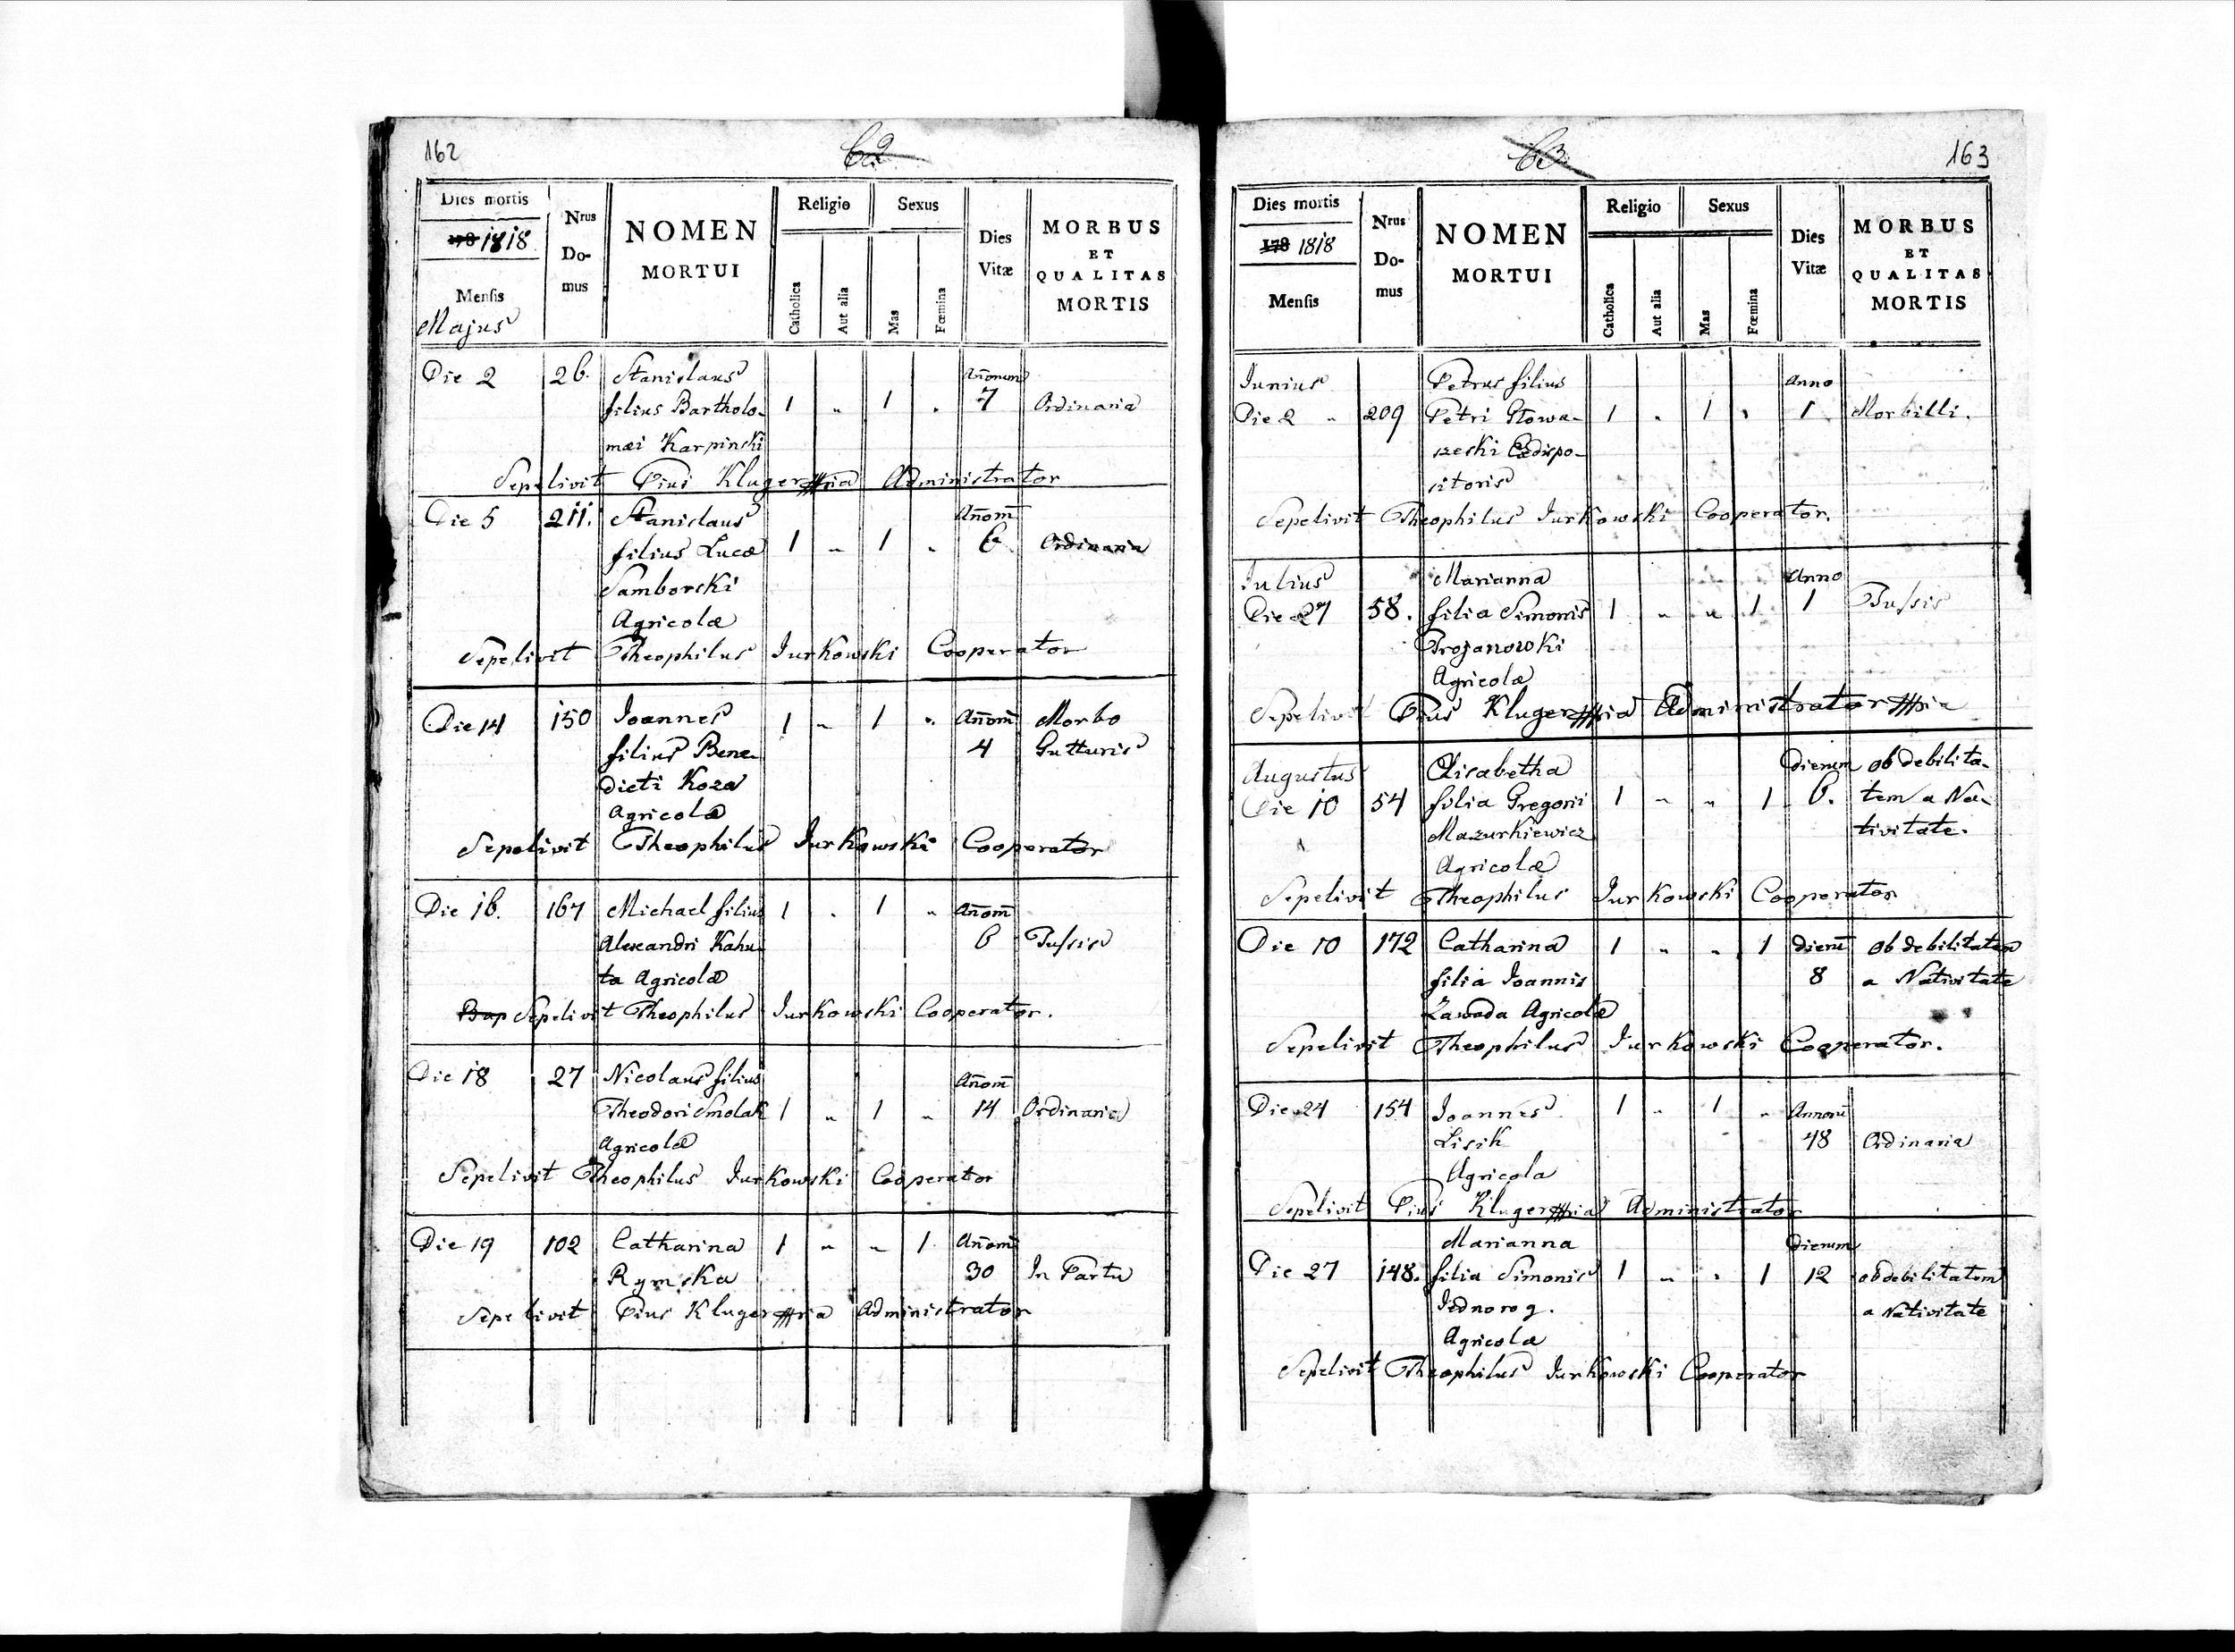 162
62
Dies mortis
178 1818
Mensis
Majus
Nrus Do- mus
NOMEN
MORTUI
Religio
Catholica
Aut alia
Sexus
Mas
Fœmina
Dies
Vitæ
MORBUS
ET
QUALITAS
MORTIS
Die 2 26. Stanislaus Añorum
filius Bartholo- 1 " 1 " 7 Ordinaria
mæi Karpinski
Sepelivit Pius Kluger mpria Administrator
Die 5 211. Stanislaus Añorm̃
filius Lucæ 1 " 1 " 6 Ordinaria
Samborski
Agricolæ
Sepelivit Theophilus Jurkowski Cooperator
Die 14 150 Joannes 1 " 1 " Añorm̃ Morbo
filius Bene- 4 Gutturis
dicti Koza
Agricolæ
Sepelivit Theophilus Jurkowski Cooperator
Die 16. 167 Michael filius 1 " 1 " Añorm̃
Alexandri Kahu- 6 Tussis
ta Agricolæ
Bap Sepelivit Theophilus Jurkowski Cooperator.
Die 18 27 Nicolaus filius Añorm̃
Theodori Smolak 1 " 1 " 14 Ordinaria
Agricolæ
Sepelivit Theophilus Jurkowski Cooperator
Die 19 102 Catharina 1 " " 1 Añorm̃
Rymska 30 In Partu
Sepelivit Pius Kluger mpria Administrator
63.
163
Dies mortis
178 1818
Mensis
Nrus Do- mus
NOMEN
MORTUI
Religio
Catholica
Aut alia
Sexus
Mas
Fœmina
Dies
Vitæ
MORBUS
ET
QUALITAS
MORTIS
Junius Petrus filius Anno
Die 2 " 209 Petri Głowa- 1 " 1 " 1 Morbilli.
szeski
sitoris
Sepelivit Theophilus Jurkowski Cooperator.
Julius Marianna Anno
Die 27 58. filia Simonis 1 " " 1 1 Tussis
Trojanowski
Agricolæ
Sepelivit Pius Kluger mpria Administrator mpria
Augustus Elisabetha Dierum ob debilita-
Die 10 54 filia Gregorii 1 " " 1 6. tem a Na-
Mazurkiewicz tivitate.
Agricolæ
Sepelivit Theophilus Jurkowski Cooperator
Die 10 172 Catharina 1 " " 1 Dierũ ob debilitatem
filia Joannis 8 a Nativitate
Zawada Agricolæ
Sepelivit Theophilus Jurkowski Cooperator.
Die 24 154 Joannes 1 " 1 " Annorũ
Lisik 48 Ordinaria
Agricola
Sepelivit Pius Kluger mpria Administrator
Marianna Dierum
Die 27 148. filia Simonis 1 " " 1 12 ob debilitatem
Jednorog. a Nativitate
Agricolæ
Sepelivit Theophilus Jurkowski Cooperator